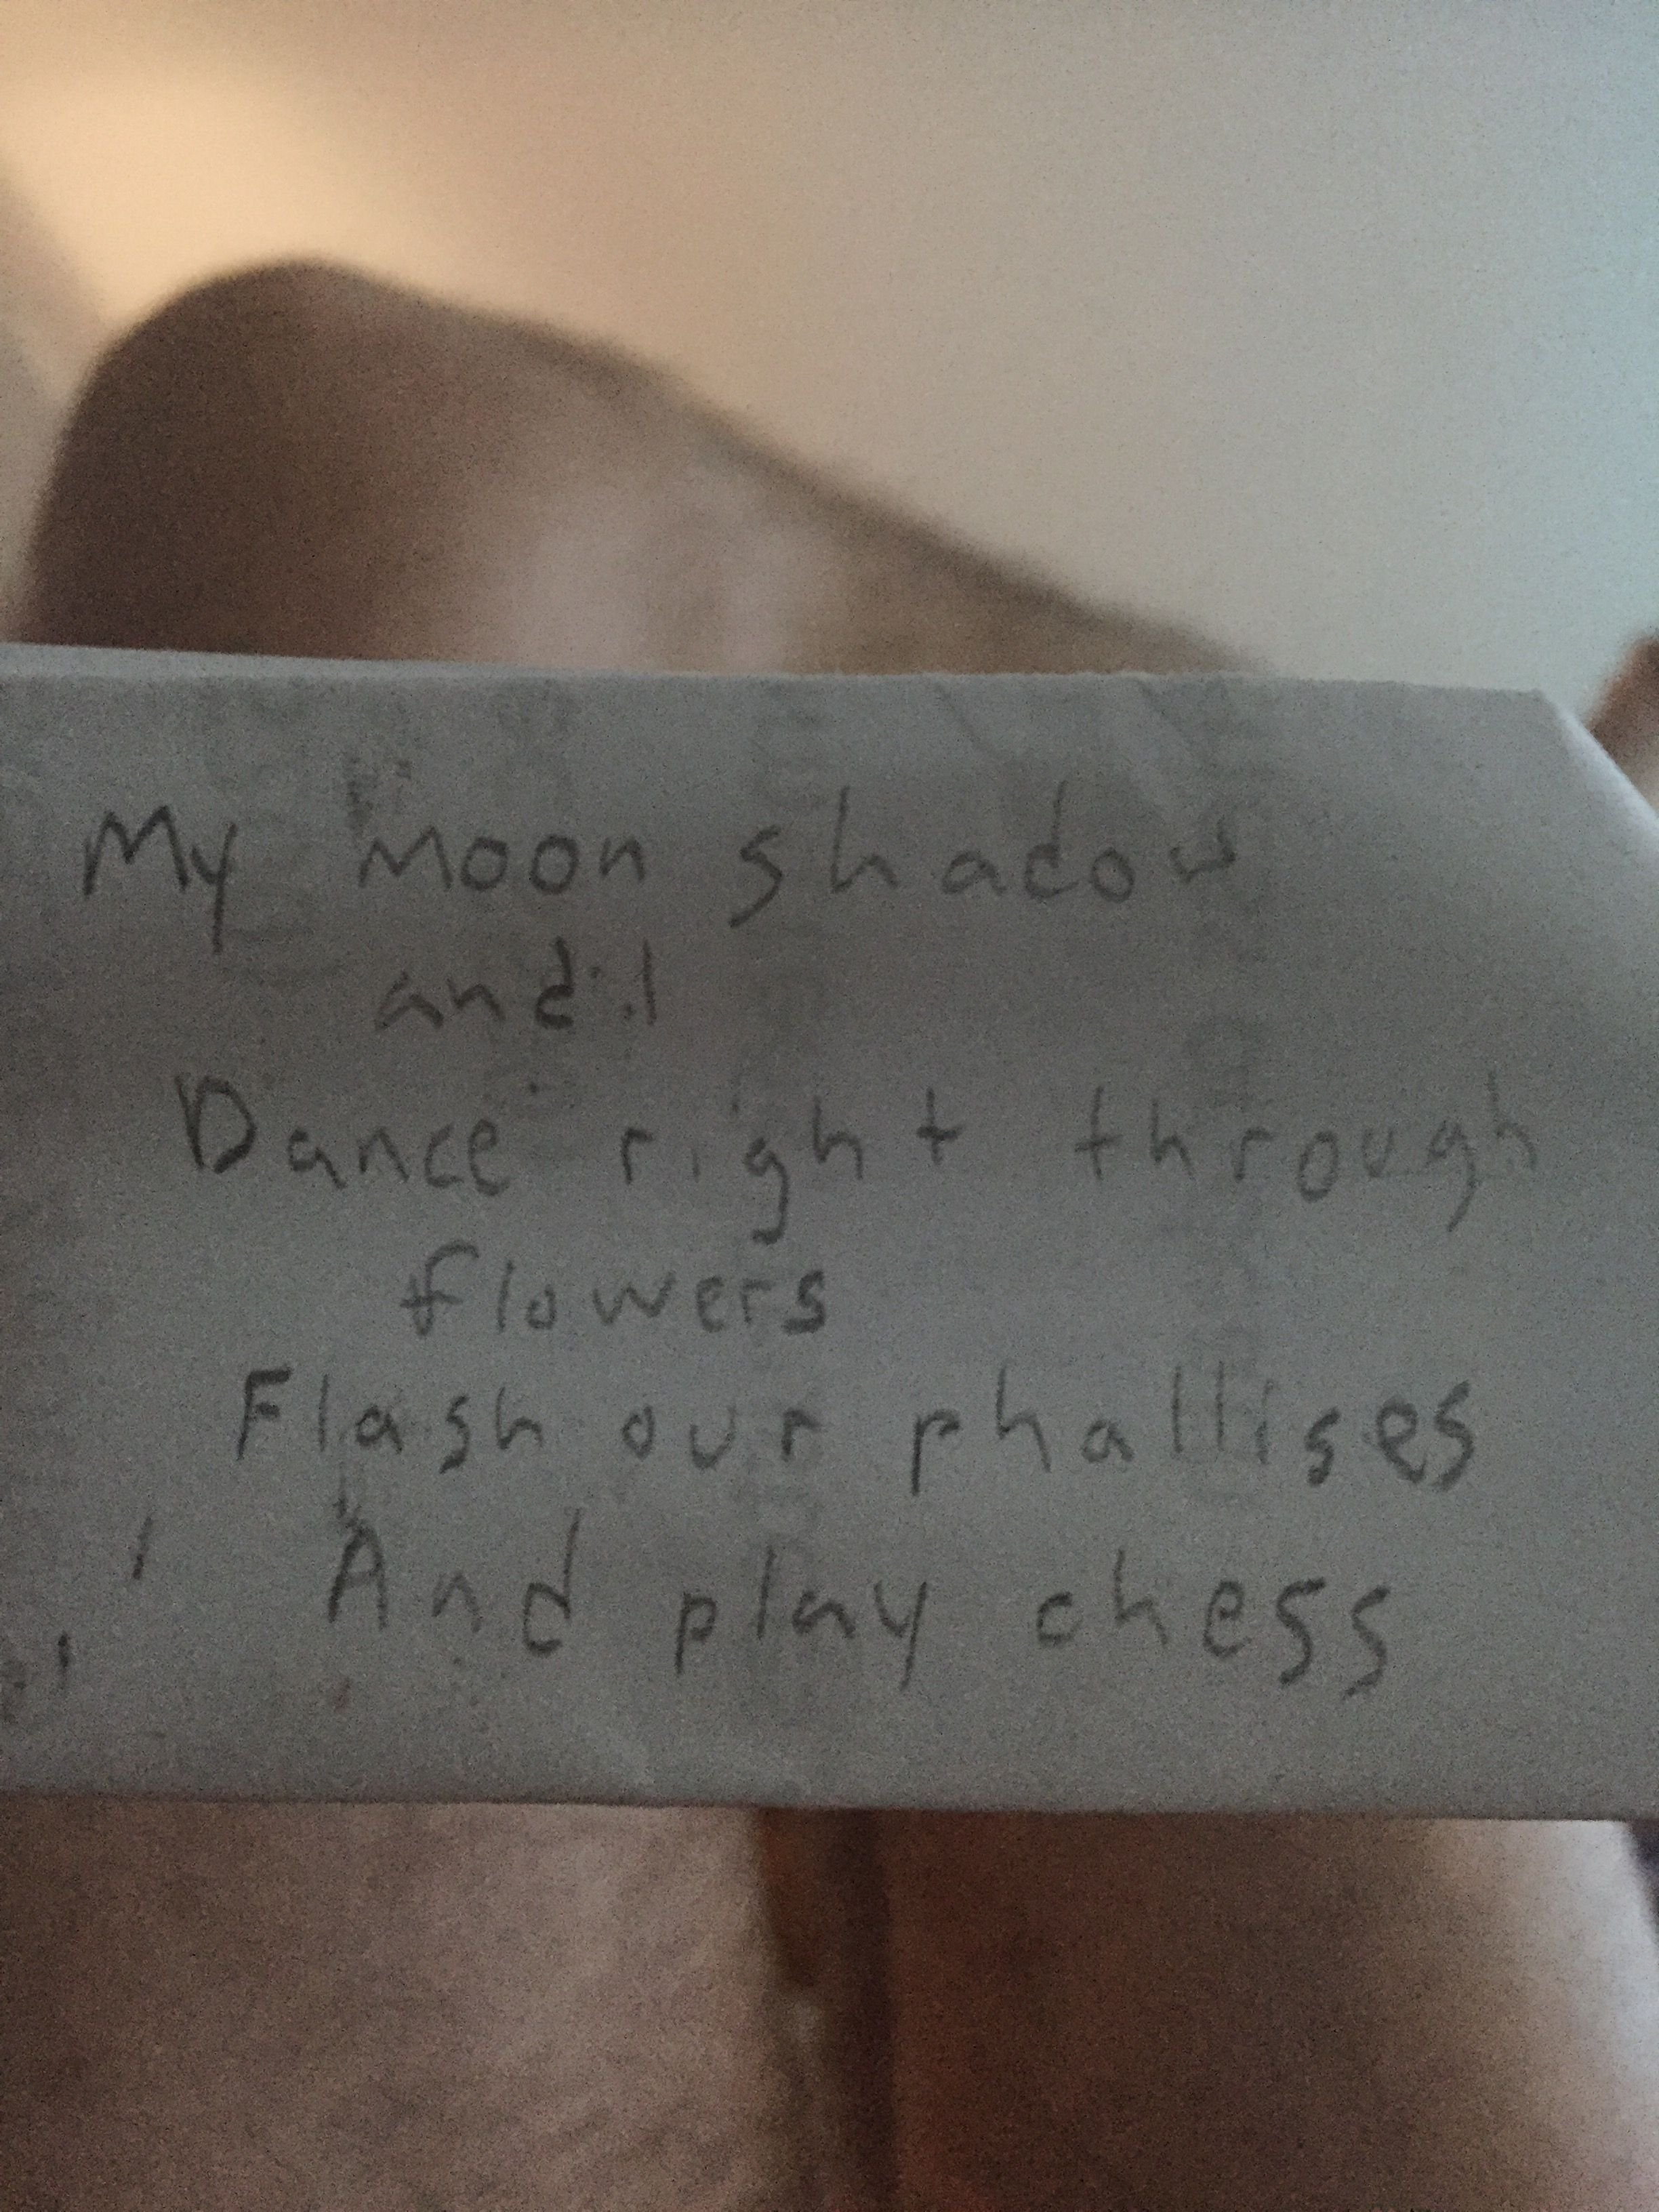 My Moon shadow
and I
Dance right through
flowers
Flash our phallises
And play chess